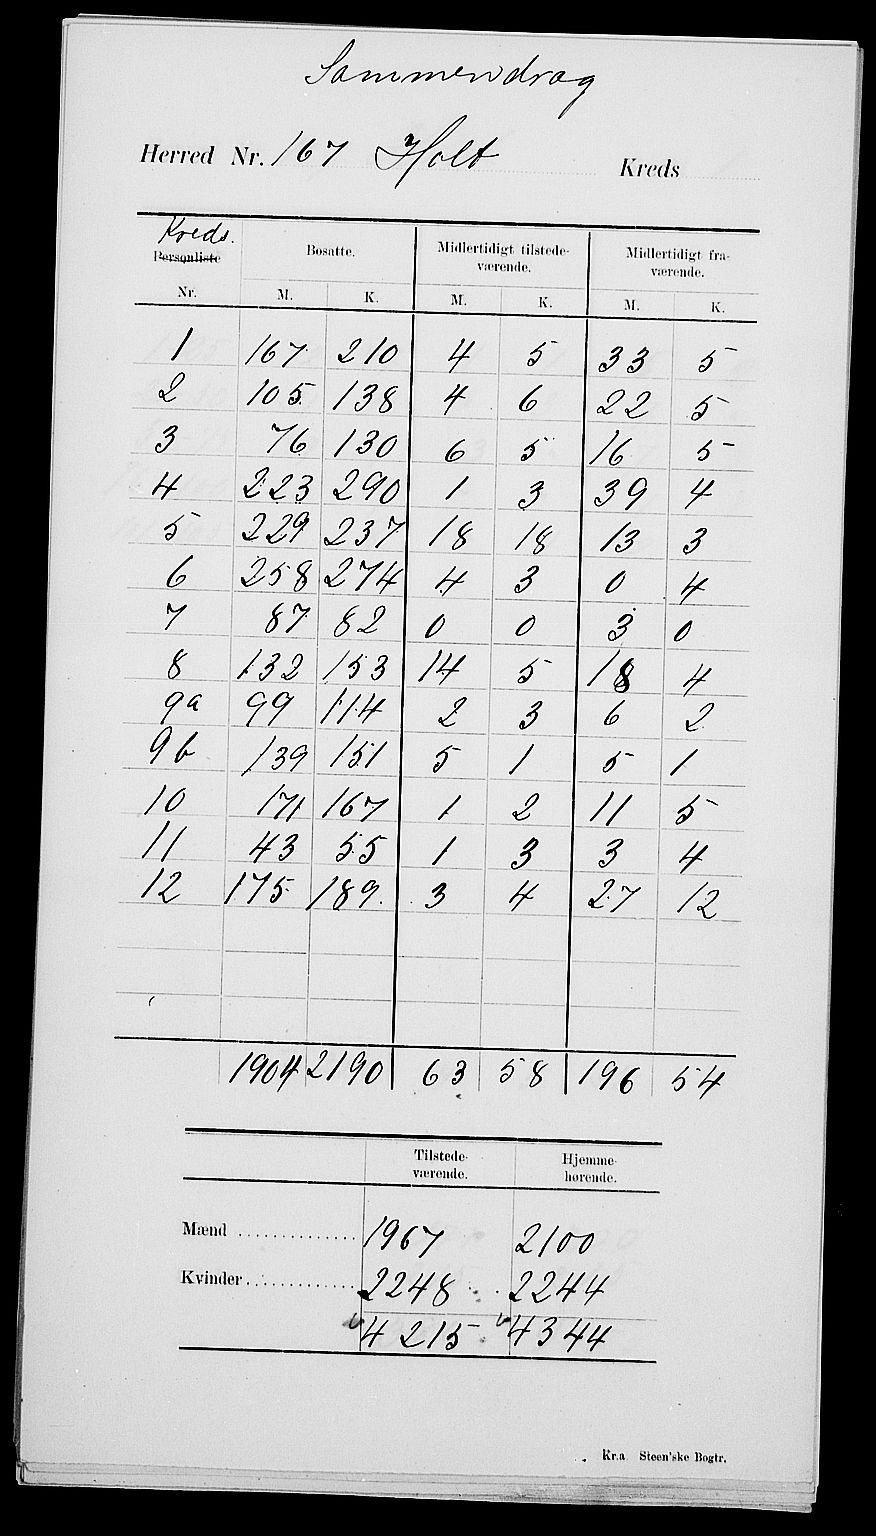 Sammendrag
Herred Nr. 167 Holt Kreds
Kreds.
Personliste Bosatte. Midlertidigt tilstede- Midlertidigt fra-
værende. værende.
Nr. M. K. M. K. M. K.
1 167 210 4 5 33 5
2 105 138 4 6 22 5
3 76 130 6 5 16 5
4 223 290 1 3 39 4
5 229 237 18 18 13 3
6 258 274 4 3 0 4
7 87 82 0 0 3 0
8 132 153 14 5 18 4
9a 99 114 2 3 6 2
9b 139 151 5 1 5 1
10 171 167 1 2 11 5
11 43 55 1 3 3 4
12 175 189 3 4 27 12
1904 2190 63 58 196 54
Tilstede- Hjemme-
værende. hørende.
Mænd 1967 2100
Kvinder 2248 2244
4215 4344
Kr.a Steen'ske Bogtr.